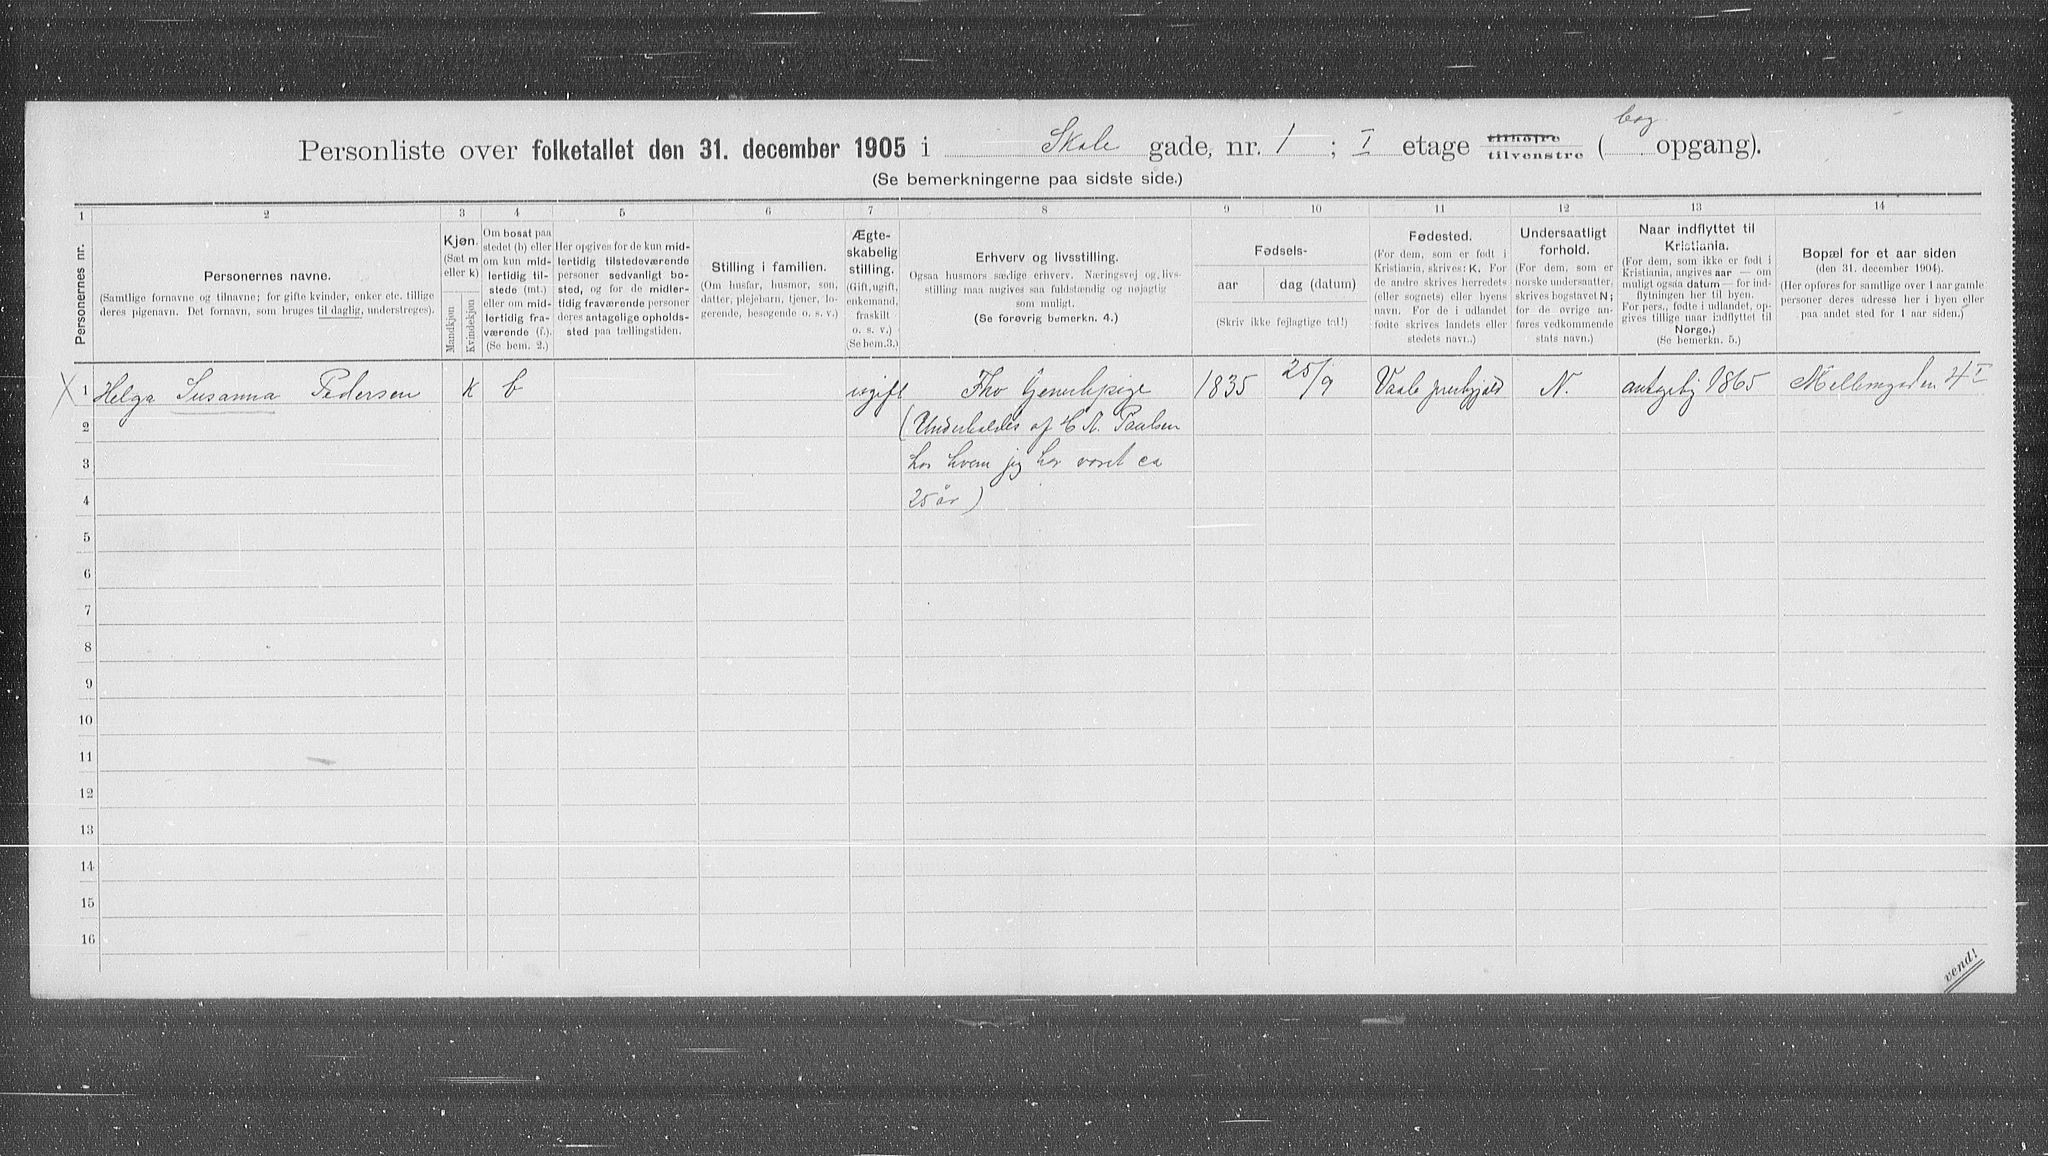 Personliste over folketallet den 31. december 1905 i Skole gade, nr. 1 ; I etage tilhøjre tilvenstre ( bag opgang).
(Se bemerkningerne paa sidste side.)
1 2 3 4 5 6 7 8 9 10 11 12 13 14
Personernes nr.
Personernes navne.
(Samtlige fornavne og tilnavne; for gifte kvinder, enker etc. tillige
deres pigenavn. Det fornavn, som bruges til daglig, understreges).
Kjøn.
(Sæt m
eller k)
Mandkjøn
Kvindekjøn
Om bosat paa
stedet (b) eller
om kun mid-
lertidig til-
stede (mt.)
eller om mid-
lertidig fra-
værende (f.).
(Se bem. 2.)
Her opgives for de kun mid-
lertidig tilstedeværende
personer sedvanligt bo-
sted, og for de midler-
tidig fraværende personer
deres antagelige opholds-
sted paa tællingstiden.
Stilling i familien.
(Om husfar, husmor, søn,
datter, plejebarn, tjener, lo-
gerende, besøgende o. s. v.)
Ægte-
skabelig
stilling.
(Gift, ugift,
enkemand,
fraskilt
o. s. v.)
(Se bem.3.)
Erhverv og livsstilling.
Ogsaa husmors særlige erhverv. Næringsvej og livs-
stilling maa angives saa fuldstændig og nøjagtig
som muligt.
(Se forøvrig bemerkn. 4.)
Fødsels-
aar
dag (datum)
(Skriv ikke fejlagtige tal!)
Fødested.
(For dem, som er født i
Kristiania, skrives: K. For
de andre skrives herredets
(eller sognets) eller byens
navn. For de i udlandet
fødte skrives landets eller
stedets navn.)
Undersaatligt
forhold.
(For dem, som er
norske undersaatter,
skrives bogstavet N;
for de øvrige an-
føres vedkommende
stats navn.)
Naar indflyttet til
Kristiania.
(For dem, som ikke er født i
Kristiania, angives aar — om
muligt ogsaa datum — for ind-
flytningen her til byen.
For pers., fødte i udlandet, op-
gives tillige naar indflyttet til
Norge.)
(Se bemerkn. 5.)
Bopæl for et aar siden
(den 31. december 1904).
(Her opføres for samtlige over 1 aar gamle
personer deres adresse her i byen eller
paa andet sted for 1 aar siden.)
X 1 Helga Susanna Pedersen k b ugift Fhv 1835 25/9 Vaale N. 1865 Mellemgaden 4 I
2 (Underholdes af H. A. Paulsen
3 hos hvem jeg har været ca
4 25 år)
5
6
7
8
9
10
11
12
13
14
15
16
vend!